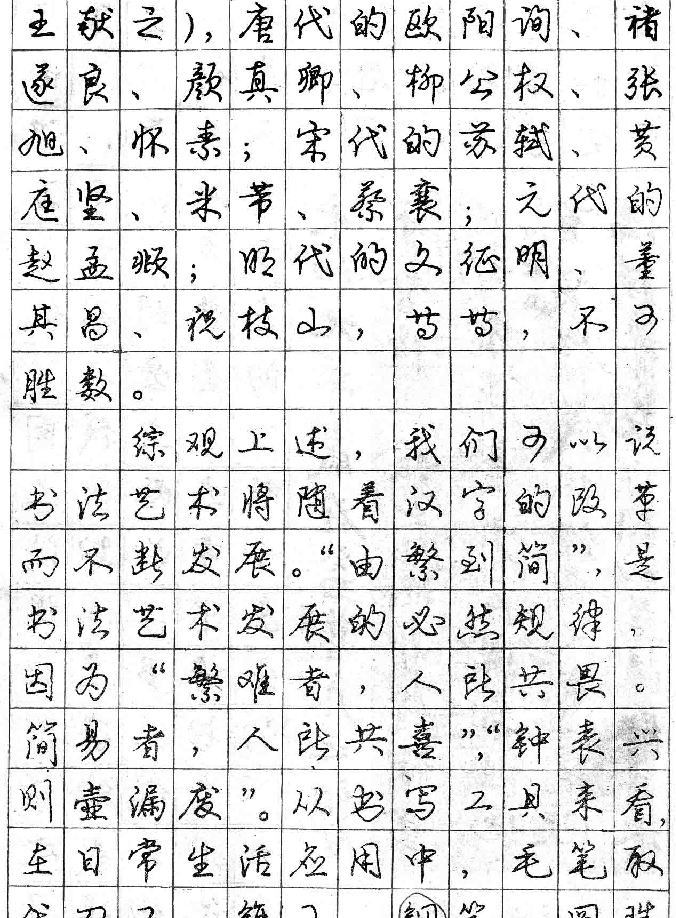 王献之），唐代的欧阳询、褚
遂良、颜真卿、柳公权、张
旭、怀素；宋代的苏轼、黄
庭坚、米芾、蔡襄；元代的
赵孟頫；明代的文征明、董
其昌、祝枝山，等等，不可
胜数。
综观上述，我们可以说
书法艺术将随着汉字的改革
而不断发展。“由繁到简”，是
书法艺术发展的必然规律，
因为“繁难者，人所共畏。
简易者，人所共喜”，“钟表兴
则壶漏废”。从书写工具来看，
在日常生活应用中，毛笔取